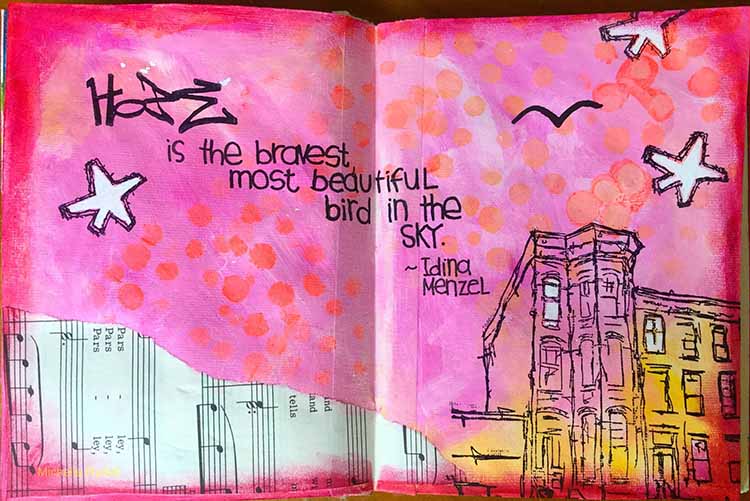 HOPE
is the bravest
most beautiful
bird in the
SKY.
~ Idina
Menzel
Pars - ley,
Pars - ley,
Pars - ley,
and
land
tells